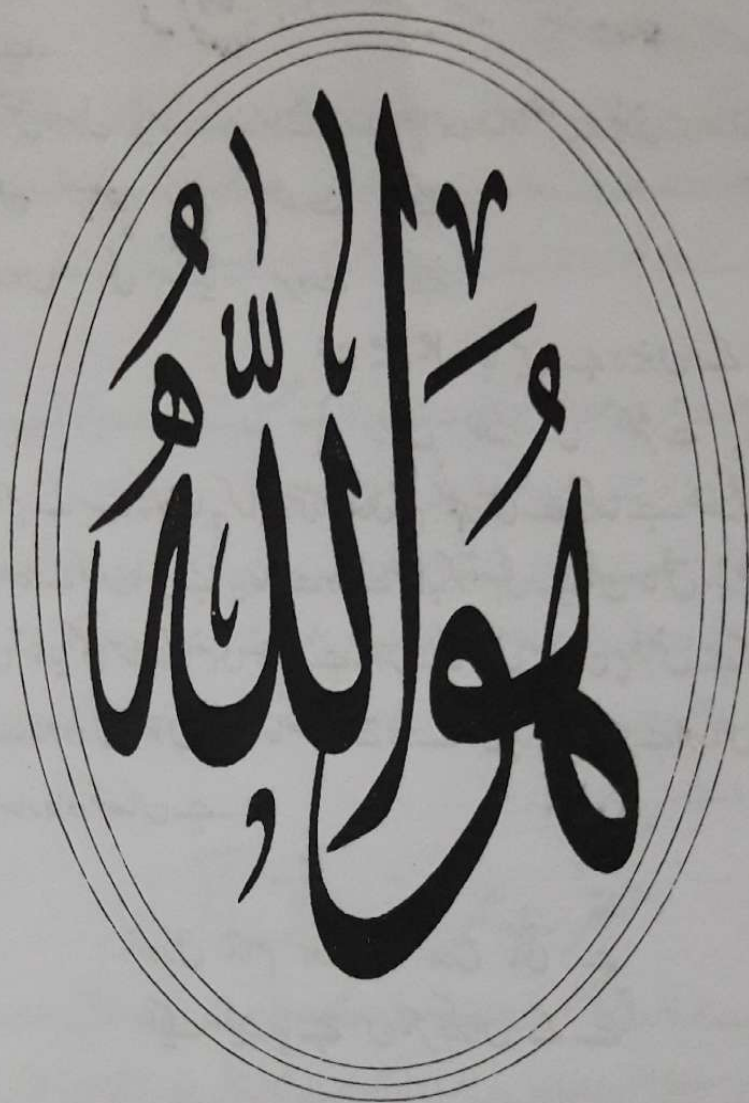 هُوَ اللّٰهُ